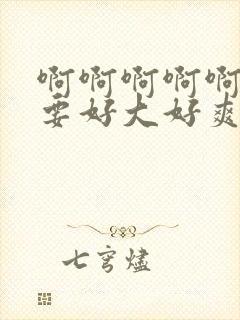 啊啊啊啊啊
要好大好爽
七穹燼